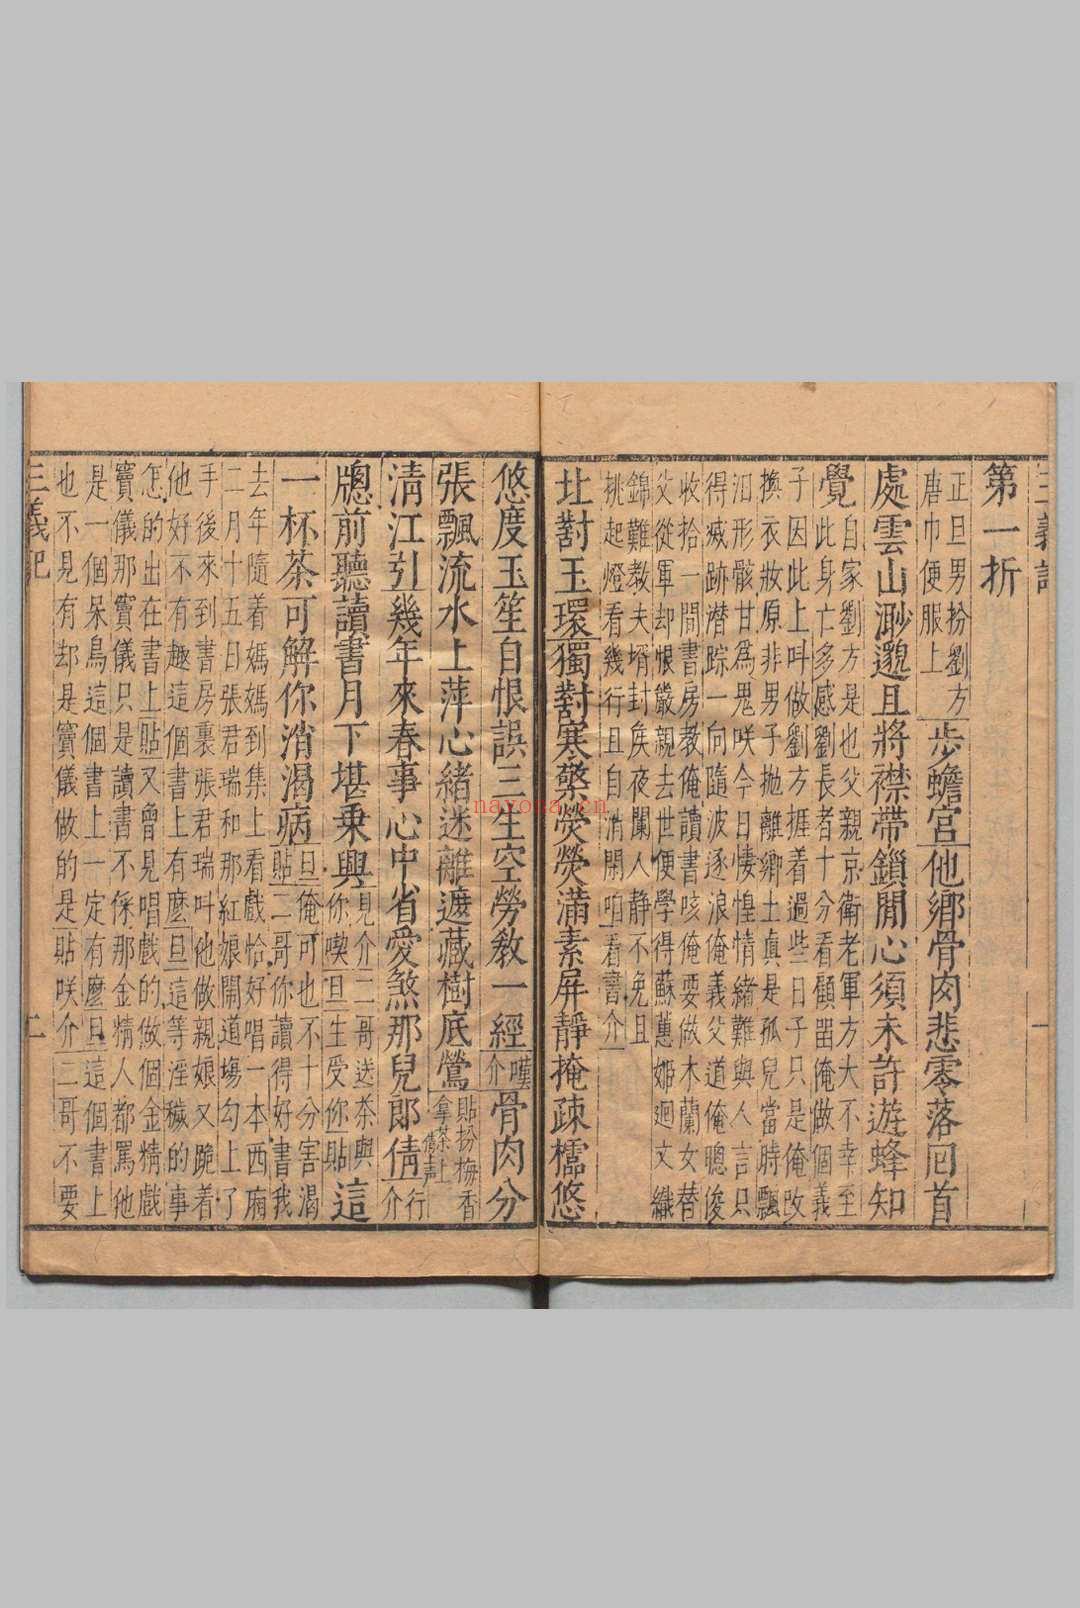 三義記 一
第一折
正旦男扮劉方
唐巾便服上
步蟾宮他鄉骨肉悲零落回首
處雲山渺邈且將襟帶鎖閒心須未許遊蜂知
覺
自家劉方是也父親京衛老軍方大不幸至
此身亡多感劉長者十分看顧畱俺做個義
子因此上呌做劉方捱着過些日子只是俺改
換衣妝原非男子抛離鄉土真是孤兒當時飄
汨形骸甘為鬼咲今日悽惶情緒難與人言只
得滅跡潜踪一向隨波逐浪俺義父道俺聰俊
收拾一間書房教俺讀書咳俺要做木蘭女替
父從軍却恨嚴親去世便學得蘇蕙姬迴文織
錦難教夫壻封矦夜闌人静不免且
挑起燈看幾行且自消閑咱看書介
北對玉環獨對寒檠熒熒滿素屏靜掩疎櫺悠
悠度玉笙自恨誤三生空勞教一經嘆介骨肉分
張飄流水上萍心緒迷離遮藏樹底鶯
貼扮梅香
拿茶上
清江引幾年來春事心中省愛煞那兒郎倩
行介
牕前聽讀書月下堪乘興
見介二哥送茶與
你喫旦生受你貼
這
一杯茶可解你消渴病
旦俺可也不十分害渴
貼二哥你讀得好書我
去年隨着媽媽到集上看戲恰好唱一本西廂
二月十五日張君瑞和那紅娘閙道塲勾上了
手後來到書房裏張君瑞叫他做親娘又跪着
他好不有趣這個書上有麽旦這等淫穢的事
怎的出在書上貼又曾見唱戲的做個金精戲
竇儀那竇儀只是讀書不倸那金精人都罵他
是一個呆鳥這個書上一定有麽旦這個書上
也不見有却是竇儀做的是貼咲介二哥不要
三義記 二
nayona.cn